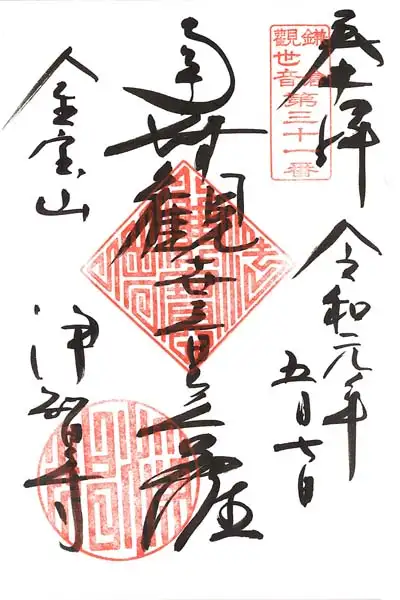 奉拝
鎌倉
觀世音第三十一番
令和元年
五月七日
南無觀世音菩薩
金宝山
浄智寺